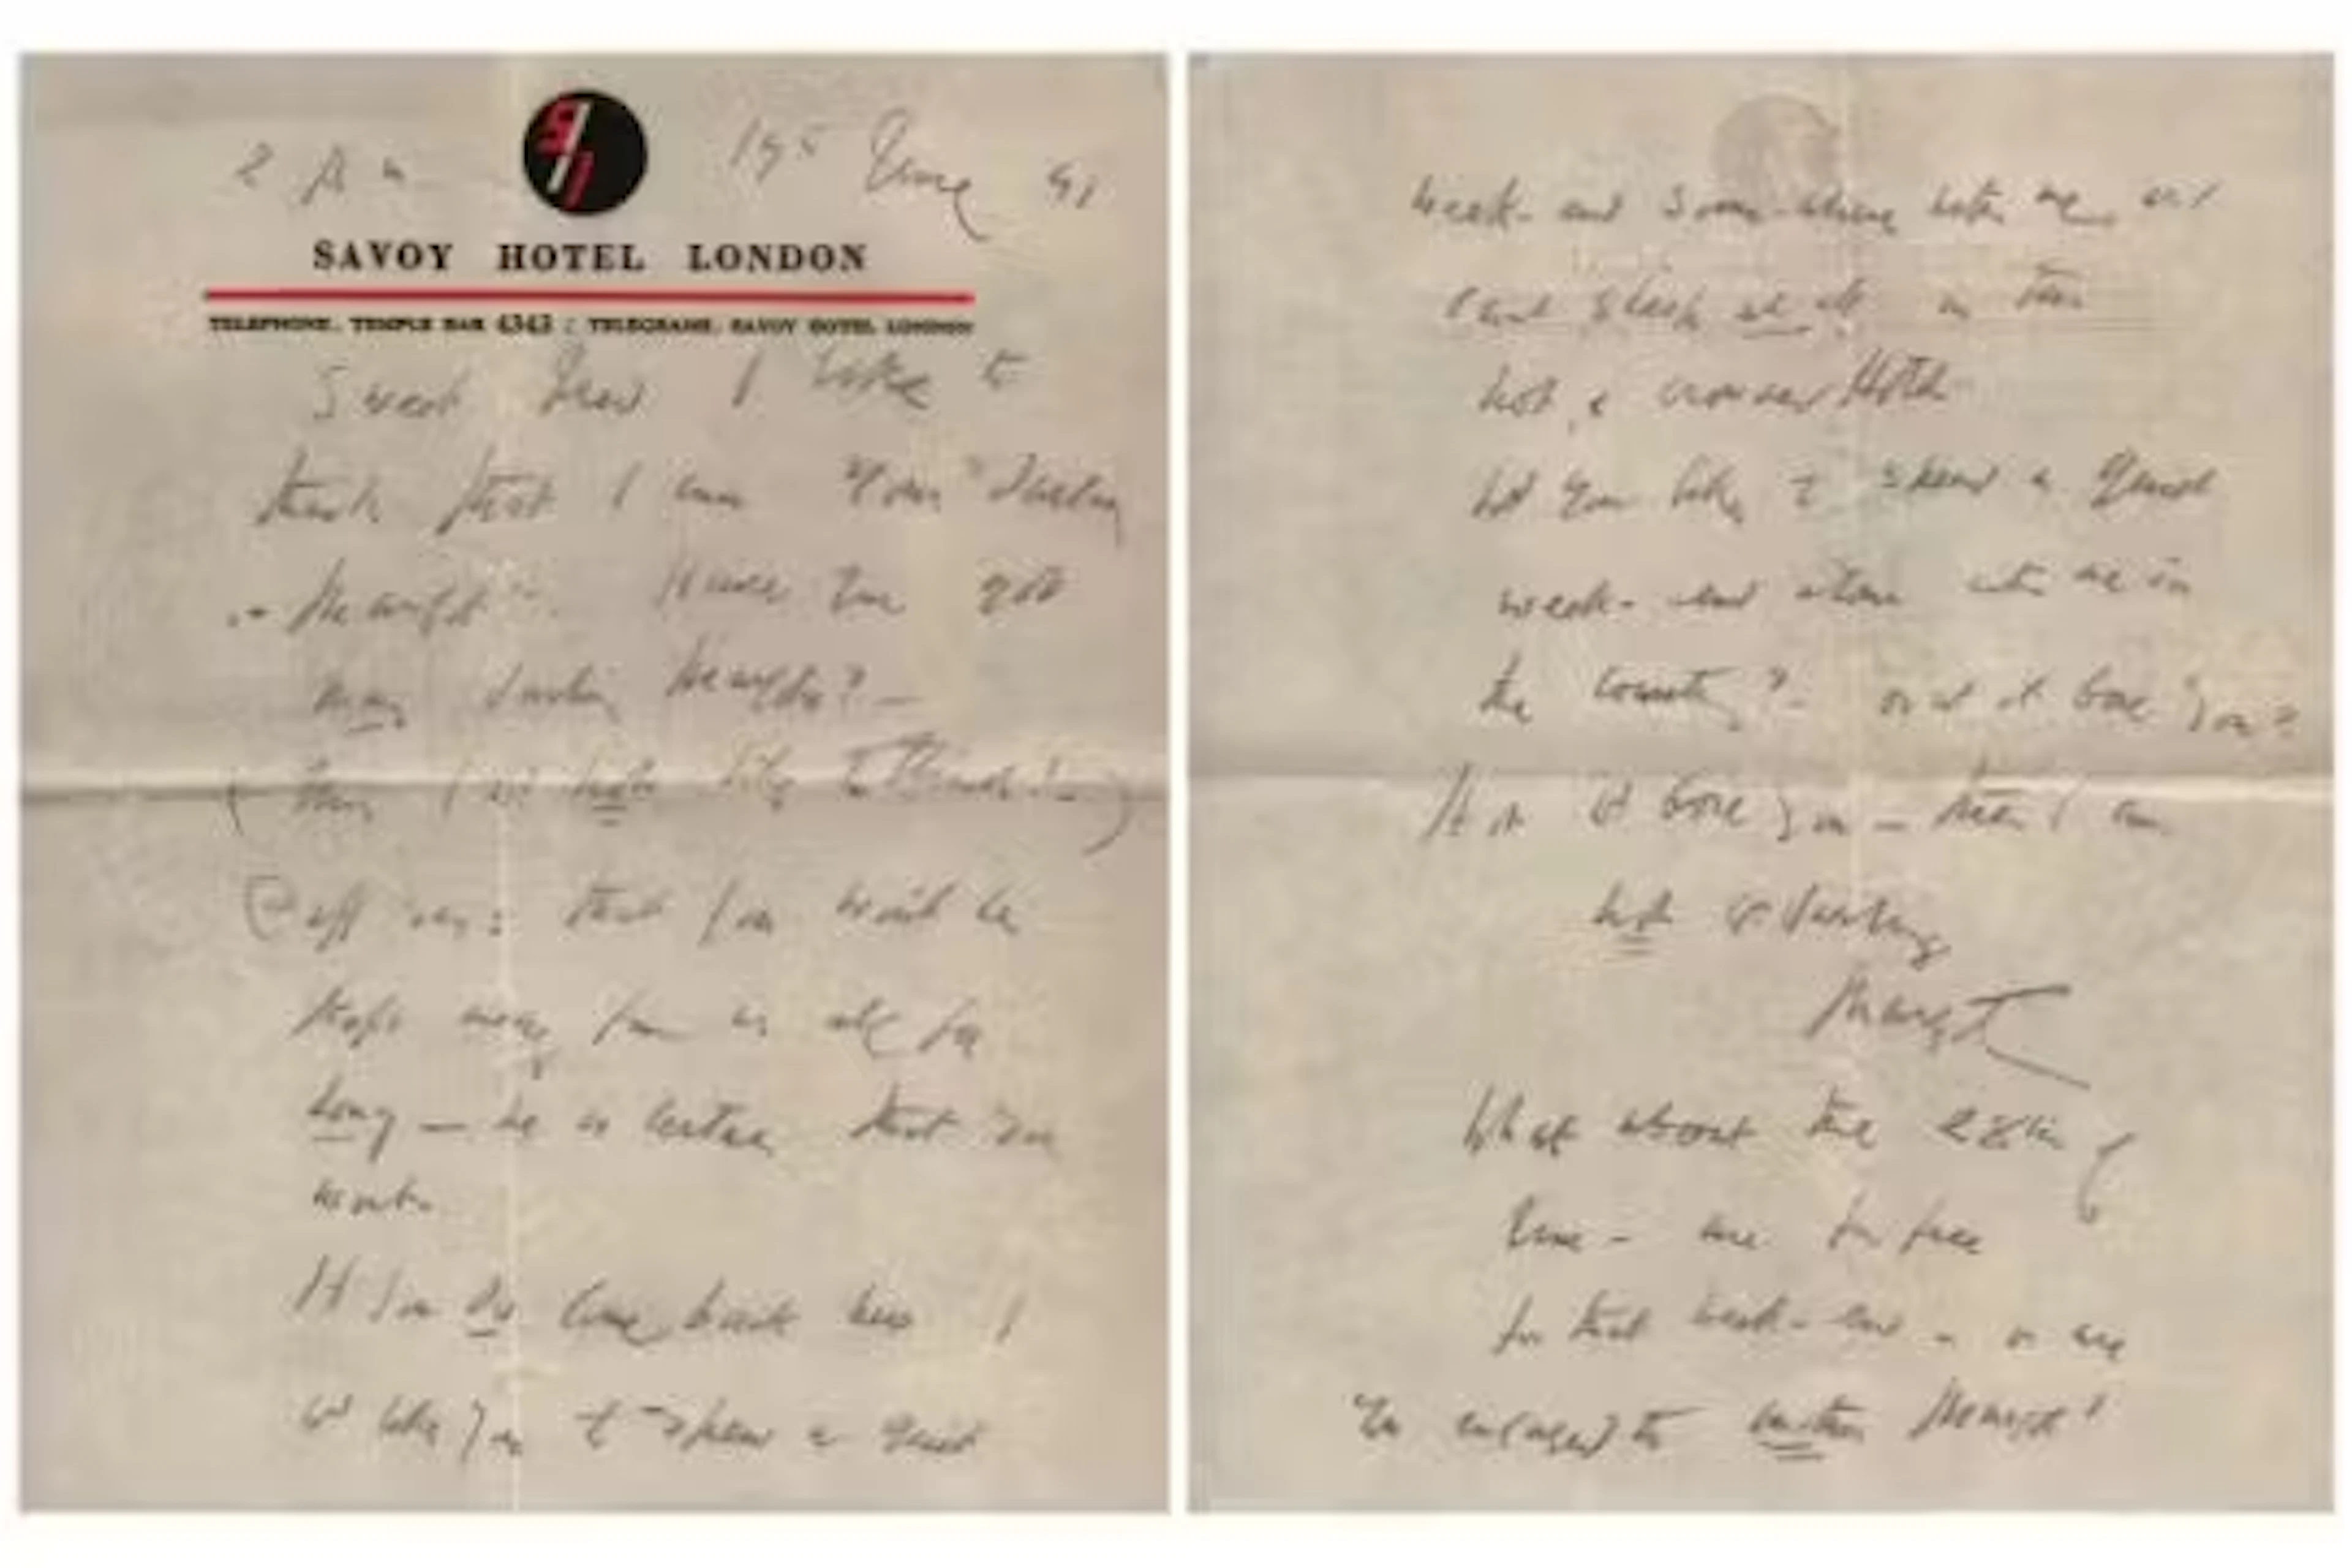 2 A M 19th June 41
SAVOY HOTEL LONDON
TELEPHONE: TEMPLE BAR 4343 : TELEGRAMS: SAVOY HOTEL LONDON
Sweet I like to
think that I am your "darling
Have you got
many darling ?—
( I not like to think! —)
that you won't be
kept away from us all for
long — he is certain that you
wont.
If you do come back here I
wd like you to spend a quiet
week-end somewhere with me as I
cant sleep at all in this
hot, & crowded Hotel
Wd you like to spend a quiet
week-end alone with me in
the country? - or wd it bore you?
If it wd bore you — then I am
not yr darling
What about the 28th of
June - are you free
for that week-end - or are
you engaged to another